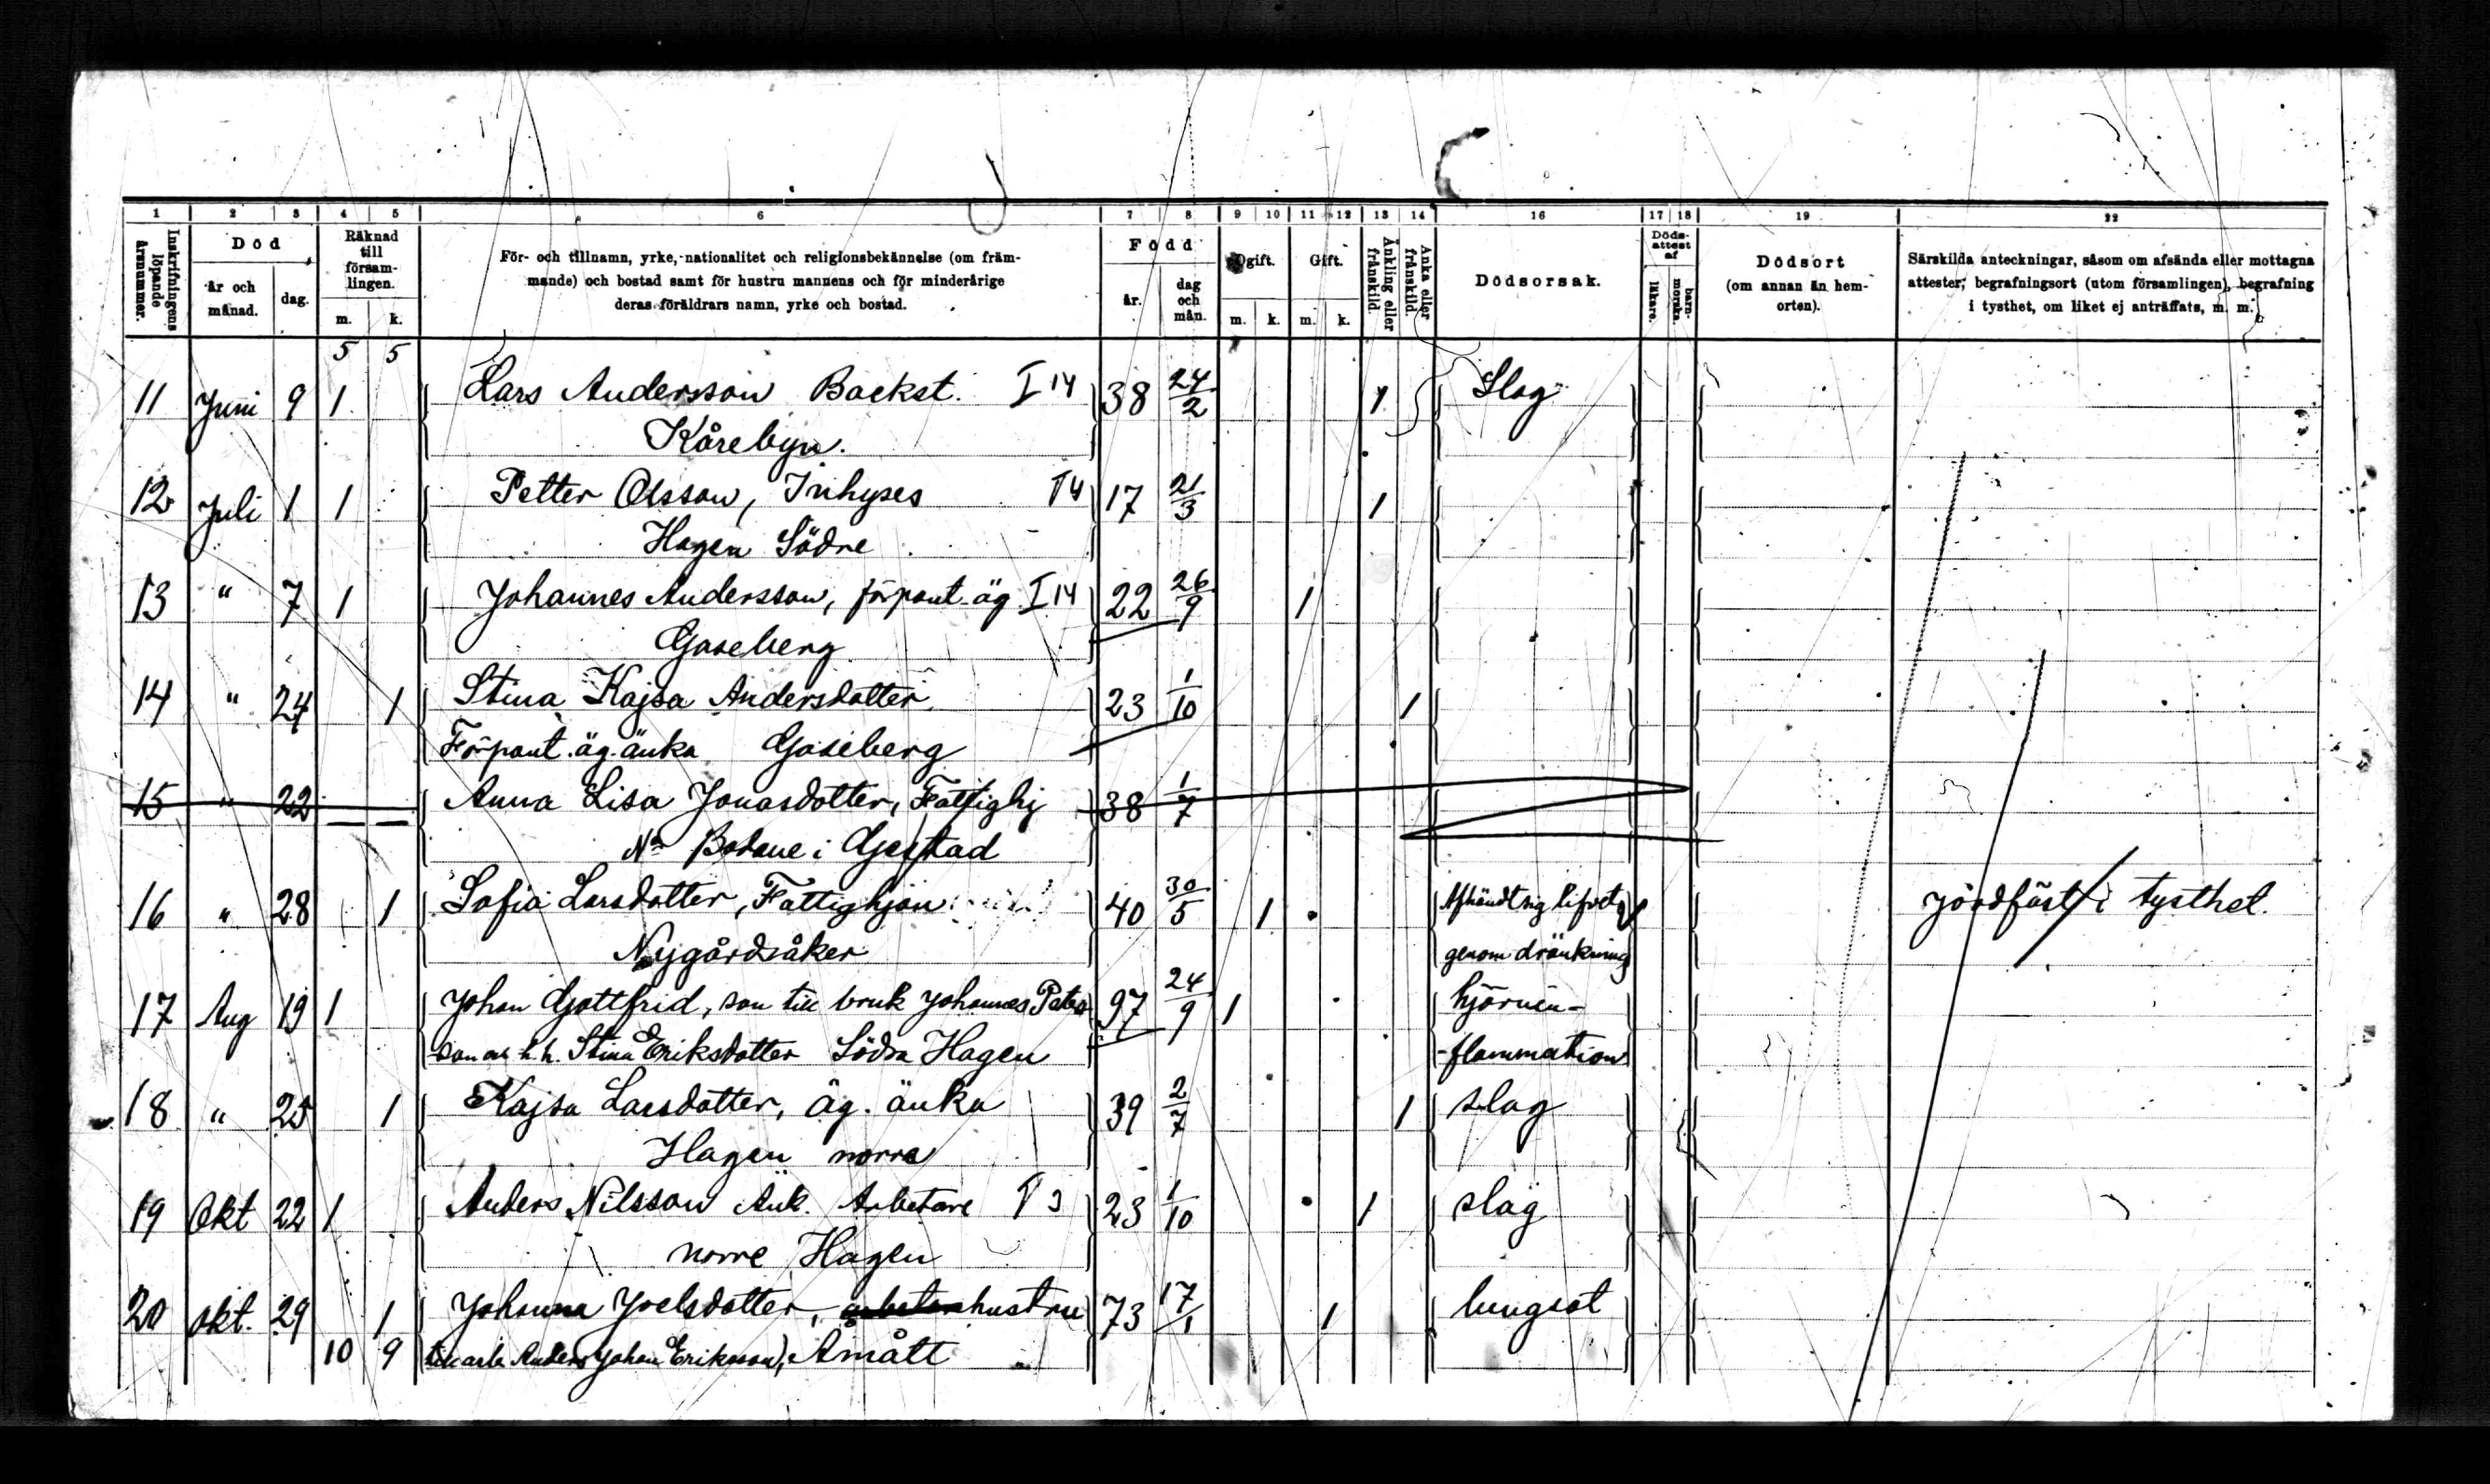 1 2 3 4 5 6 7 8 9 10 11 12 13 14 16 17 18 19 22
Inskrifningens löpande årsnummer.
Död
år och månad.
dag.
Räknad till försam-
lingen.
m. k.
För- och tillnamn, yrke, nationalitet och religionsbekännelse (om främ-
mande) och bostad samt för hustru mannens och för minderårige
deras föräldrars namn, yrke och bostad.
Född
år.
dag och mån.
Ogift.
m. k.
Gift.
m. k.
Änkling eller frånskild.
Änka eller frånskild.
Dödsorsak.
Döds-
attest
af
läkare.
barn-
morska.
Dödsort
(om annan än hem-
orten).
Särskilda anteckningar, såsom om afsända eller mottagna
attester, begrafningsort (utom församlingen), begrafning
i tysthet, om liket ej anträffats, m. m.
5 5
11 Juni 9 1 Lars Andersson Backst. I 14 38 24/2 1 Slag
Kårebyn.
12 Juli 1 1 Petter Olsson, Inhyses 17 21/3 1
Hagen Södre
13 " 7 1 Johannes Andersson, förpant. äg I 14 22 26/9 1
Gaseberg
14 " 24 1 Stina Kajsa Andersdotter 23 1/10 1
Förpant. äg. änka Gaseberg
15 " 22 Anna Lisa Jonasdotter, Fattighj 38 1/7
Na Bodane i Gestad
16 " 28 1 Sofia Larsdotter, Fattighjon 40 30/5 1 Afhändt sig lifvet jordfäst i tysthet.
Nygårdsåker genom dränkning
17 Aug 19 1 Johan Gottfrid, son till bruk Johannes Peters 97 24/9 1 hjärnin-
son och h. h. Stina Eriksdotter Södra Hagen -flammation
18 " 25 1 Kajsa Larsdotter, äg. änka 39 2/7 1 slag
Hagen norra
19 Okt 22 1 Anders Nilsson Änk. Arbetare 23 1/10 1 slag
norre Hagen
20 okt. 29 1 Johanna Joelsdotter, hustru 73 17/1 1 lungsot
10 9 till arb. Anders Johan Eriksson), Åmått